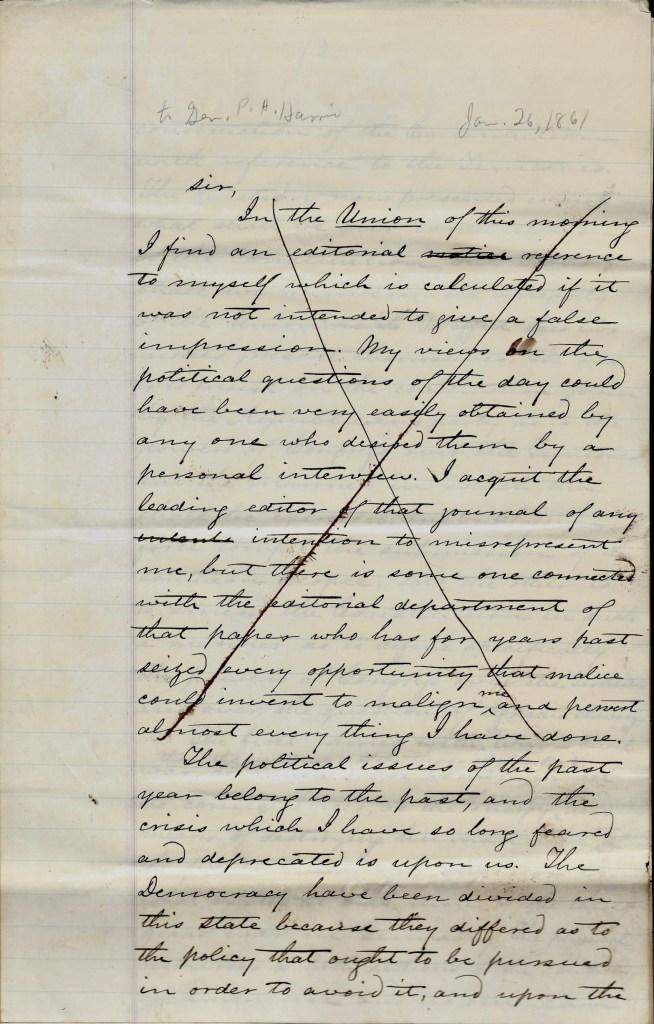 to Gen. P. A. Harris Jan. 26, 1861
sir,
In the Union of this morning
I find an editorial notice reference
to myself which is calculated if it
was not intended to give a false
impression. My views on the
political questions of the day could
have been very easily obtained by
any one who desired them by a
personal interview. I acquit the
leading editor of that journal of any
intention to misrepresent
me, but there is some one connected
with the editorial department of
that paper who has for years past
seized every opportunity that malice
could invent to malign me and pervert
almost every thing I have done.
The political issues of the past
year belong to the past, and the
crisis which I have so long feared
and deprecated is upon us. The
Democracy have been divided in
this state because they differed as to
the policy that ought to be pursued
in order to avoid it, and upon the